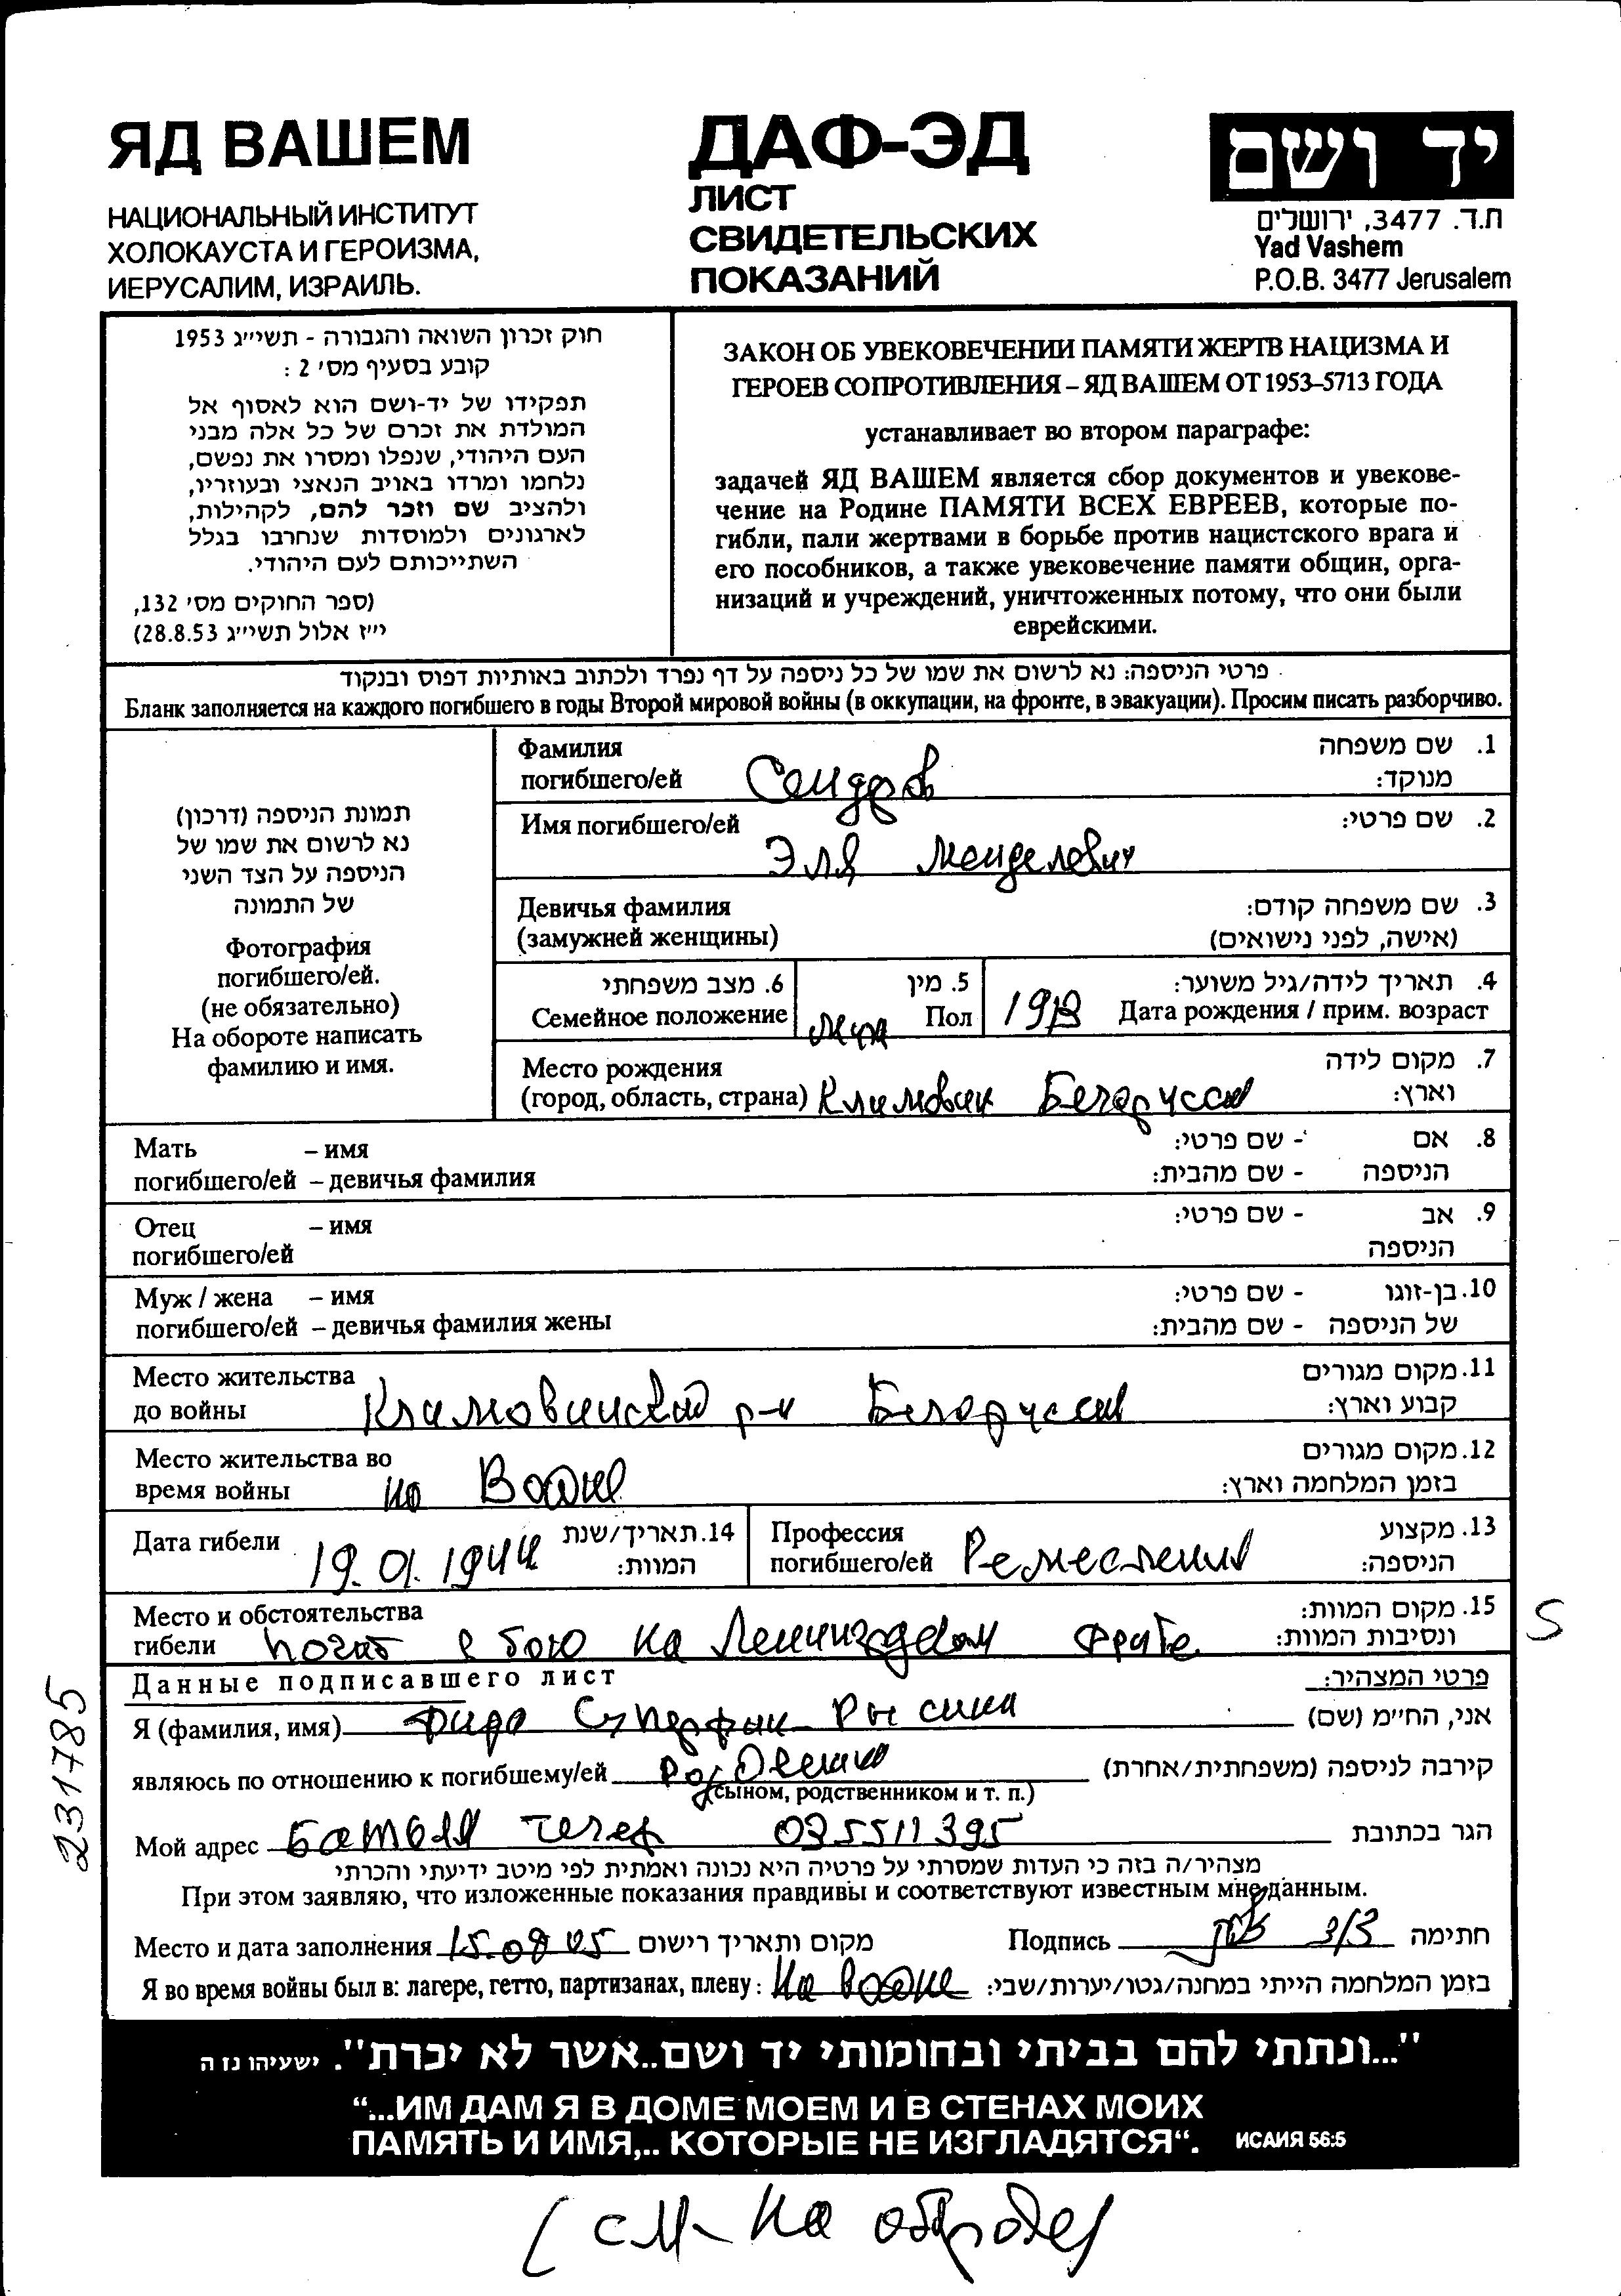 ЯД ВАШЕМ
НАЦИОНАЛЬНЫЙ ИНСТИТУТ
ХОЛОКАУСТА И ГЕРОИЗМА,
ИЕРУСАЛИМ, ИЗРАИЛЬ.
ДАФ-ЭД
ЛИСТ
СВИДЕТЕЛЬСКИХ
ПОКАЗАНИЙ
יד ושם
ת.ד. 3477, ירושלים
Yad Vashem
P.O.B. 3477 Jerusalem
חוק זכרון השואה והגבורה - תשי״ג 1953
קובע בסעיף מס׳ 2 :
תפקידו של יד-ושם הוא לאסוף אל
המולדת את זכרם של כל אלה מבני
העם היהודי, שנפלו ומסרו את נפשם,
נלחמו ומרדו באויב הנאצי ובעוזריו,
ולהציב שם וזכר להם, לקהילות,
לארגונים ולמוסדות שנחרבו בגלל
השתייכותם לעם היהודי.
(ספר החוקים מס׳ 132,
י״ז אלול תשי״ג 28.8.53)
ЗАКОН ОБ УВЕКОВЕЧЕНИИ ПАМЯТИ ЖЕРТВ НАЦИЗМА И
ГЕРОЕВ СОПРОТИВЛЕНИЯ – ЯД ВАШЕМ ОТ 1953–5713 ГОДА
устанавливает во втором параграфе:
задачей ЯД ВАШЕМ является сбор документов и увекове-
чение на Родине ПАМЯТИ ВСЕХ ЕВРЕЕВ, которые по-
гибли, пали жертвами в борьбе против нацистского врага и
его пособников, а также увековечение памяти общин, орга-
низаций и учреждений, уничтоженных потому, что они были
еврейскими.
פרטי הניספה: נא לרשום את שמו של כל ניספה על דף נפרד ולכתוב באותיות דפוס ובנקוד
Бланк заполняется на каждого погибшего в годы Второй мировой войны (в оккупации, на фронте, в эвакуации). Просим писать разборчиво.
תמונת הניספה (דרכון)
נא לרשום את שמו של
הניספה על הצד השני
של התמונה
Фотография
погибшего/ей.
(не обязательно)
На обороте написать
фамилию и имя.
Фамилия 1. שם משפחה
погибшего/ей מנוקד:
Имя погибшего/ей Эля Менделевич 2. שם פרטי:
Девичья фамилия 3. שם משפחה קודם:
(замужней женщины) (אישה, לפני נישואים)
6. מצב משפחתי 5. מין 4. תאריך לידה/גיל משוער:
Семейное положение муж Пол Дата рождения / прим. возраст
Место рождения 7. מקום לידה
(город, область, страна) Климовичи Белоруссия וארץ:
Мать – имя - שם פרטי: 8. אם
погибшего/ей – девичья фамилия - שם מהבית: הניספה
Отец – имя - שם פרטי: 9. אב
погибшего/ей הניספה
Муж / жена – имя - שם פרטי: 10. בן-זוגו
погибшего/ей – девичья фамилия жены - שם מהבית: של הניספה
Место жительства 11. מקום מגורים
до войны Климовичский р-н Белоруссия קבוע וארץ:
Место жительства во 12. מקום מגורים
время войны на войне בזמן המלחמה וארץ:
Дата гибели 19.01.1944 14. תאריך/שנת Профессия 13. מקצוע
המוות: погибшего/ей הניספה:
Место и обстоятельства 15. מקום המוות:
гибели погиб в бою на Ленинградском фронте ונסיבות המוות:
S
231785
Данные подписавшего лист פרטי המצהיר:
Я (фамилия, имя) אני, החי״מ (שם)
являюсь по отношению к погибшему/ей קירבה לניספה (משפחתית/אחרת)
(сыном, родственником и т. п.)
Мой адрес 035511395 הגר בכתובת
מצהיר/ה בזה כי העדות שמסרתי על פרטיה היא נכונה ואמתית לפי מיטב ידיעתי והכרתי
При этом заявляю, что изложенные показания правдивы и соответствуют известным мне данным.
Место и дата заполнения 15.08.05 מקום ותאריך רישום Подпись חתימה
Я во время войны был в: лагере, гетто, партизанах, плену: на войне בזמן המלחמה הייתי במחנה/גטו/יערות/שבי:
״...ונתתי להם בביתי ובחומותי יד ושם..אשר לא יכרת״. ישעיהו נז ה
“...ИМ ДАМ Я В ДОМЕ МОЕМ И В СТЕНАХ МОИХ
ПАМЯТЬ И ИМЯ,.. КОТОРЫЕ НЕ ИЗГЛАДЯТСЯ“. ИСАИЯ 56:5
(см- на обороте)